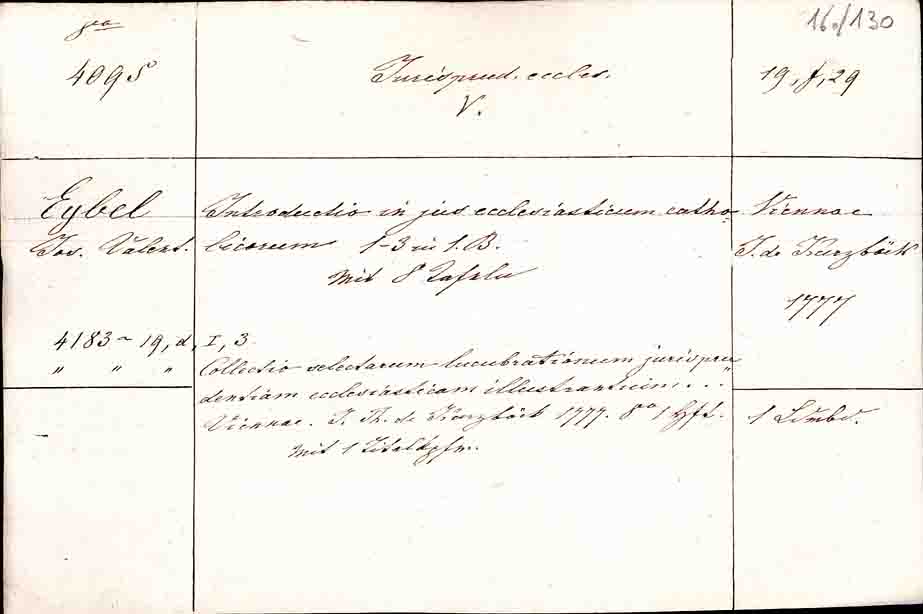 8vo
16./130
4095
Jurisprud. eccles.
V.
19, f, 29
Eybel
Jos. Valent.
Introductio in jus ecclesiasticum catho-
licorum 1-3 in 1. B.
Mit 8 Tafeln
Viennae
J. de Kurzböck
1777
4183 ~ 19, d, I, 3
" " "
Collectio selectarum lucubrationum jurispru-
dentiam ecclesiasticam illustrantium...
Viennae. J. Th. de Kurzböck 1777. 8o 1 Hft.
Mit 1 Titelkpfr.
1 Ldrbd.